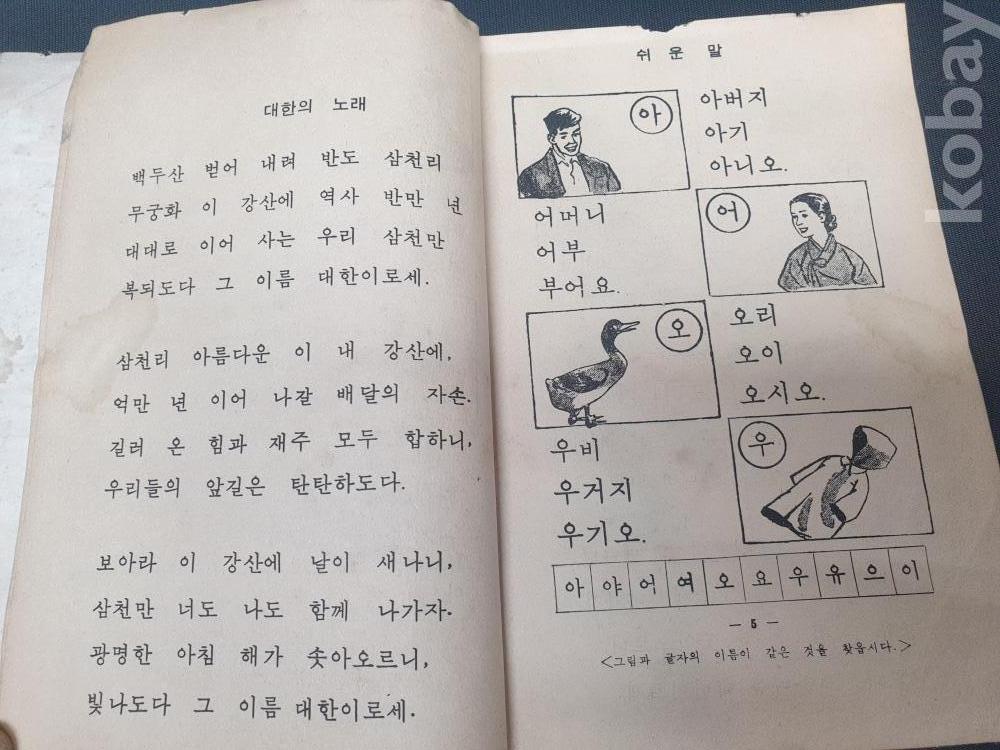 대한의 노래
백두산 벋어 내려 반도 삼천리
무궁화 이 강산에 역사 반만 년
대대로 이어 사는 우리 삼천만
복되도다 그 이름 대한이로세.
삼천리 아름다운 이 내 강산에,
억만 년 이어 나갈 배달의 자손.
길러 온 힘과 재주 모두 합하니,
우리들의 앞길은 탄탄하도다.
보아라 이 강산에 날이 새나니,
삼천만 너도 나도 함께 나가자.
광명한 아침 해가 솟아오르니,
빛나도다 그 이름 대한이로세.
쉬운 말
아
아버지
아기
아니오.
어머니
어부
부어요.
어
오
오리
오이
오시오.
우비
우거지
우기오.
우
아 야 어 여 오 요 우 유 으 이
— 5 —
<그림과 글자의 이름이 같은 것을 찾읍시다.>
kobay